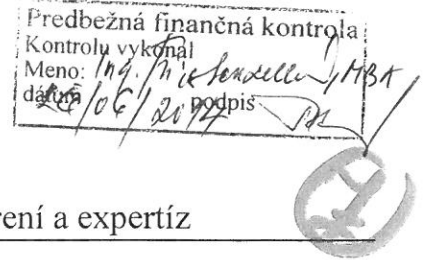 Predbežná finančná kontrola
Kontrolu vykonal
Meno: Ing. MBA
dátum /06/2014 podpis
rení a expertíz